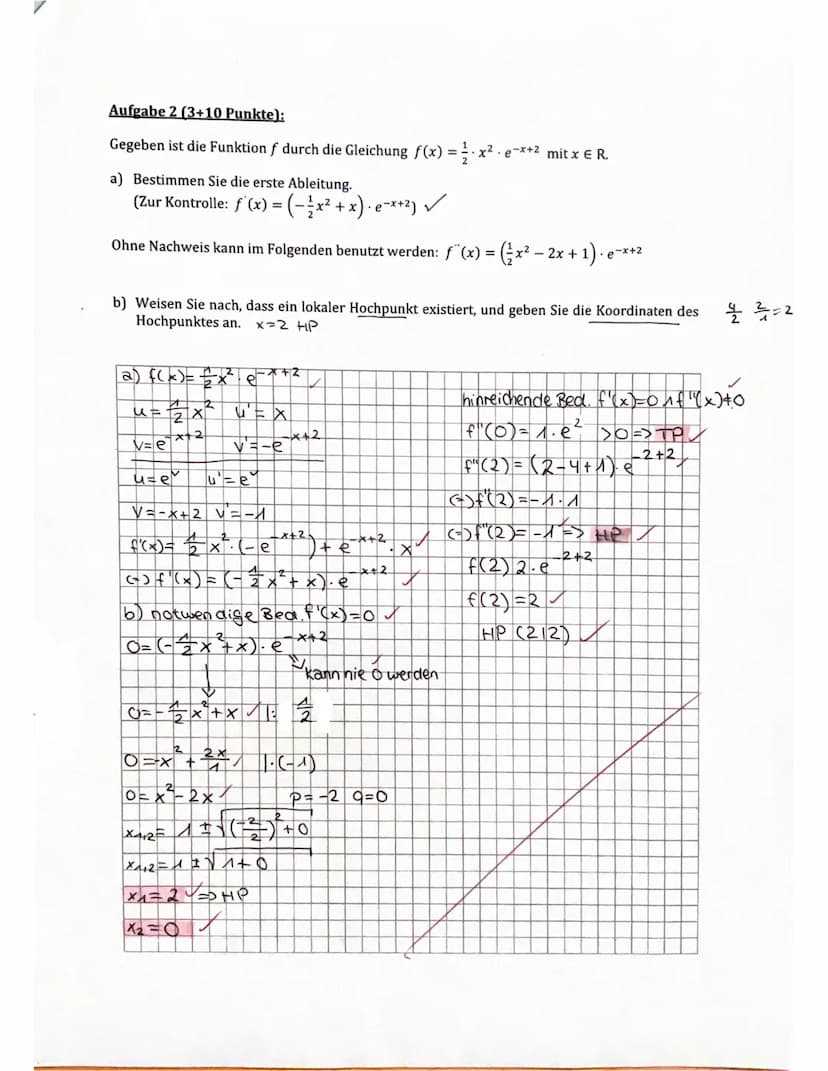 Aufgabe 2 (3+10 Punkte):
Gegeben ist die Funktion f durch die Gleichung f(x) = 1/2 · x² · e^(-x+2) mit x ∈ R.
a) Bestimmen Sie die erste Ableitung.
(Zur Kontrolle: f´(x) = (-1/2 x² + x) · e^(-x+2)) ✓
Ohne Nachweis kann im Folgenden benutzt werden: f´´(x) = (1/2 x² − 2x + 1) · e^(-x+2)
b) Weisen Sie nach, dass ein lokaler Hochpunkt existiert, und geben Sie die Koordinaten des 4/2 2/1 = 2
Hochpunktes an. x=2 HP
a) f(x)= 1/2 x² · e^(-x+2) ✓
u= 1/2 x² u'= x
v=e^(-x+2) v'=-e^(-x+2)
u=e^v u'=e^v
v=-x+2 v'=-1
f'(x)= 1/2 x² · (-e^(-x+2)) + e^(-x+2) · x ✓
(=) f'(x) = (-1/2 x² + x) · e^(-x+2) ✓
b) notwendige Bed. f'(x)=0 ✓
0= (-1/2 x² + x) · e^(-x+2)
kann nie 0 werden ✓
0= -1/2 x² + x ✓ |: 1/2
0=-x² + 2x/1 |·(-1)
0= x² - 2x ✓ p= -2 q=0
x1,2= 1 ± √((-2/2)² + 0)
x1,2= 1 ± √1+0
x1 = 2 ✓ => HP
x2 = 0 ✓
hinreichende Bed. f'(x)=0 ∧ f''(x)≠0 ✓
f''(0) = 1·e² >0 => TP ✓
f''(2) = (2-4+1) · e^(-2+2) ✓
(=) f''(2) = -1·1
(=) f''(2) = -1 => HP ✓
f(2) 2·e^(-2+2)
f(2) = 2 ✓
HP (2|2) ✓